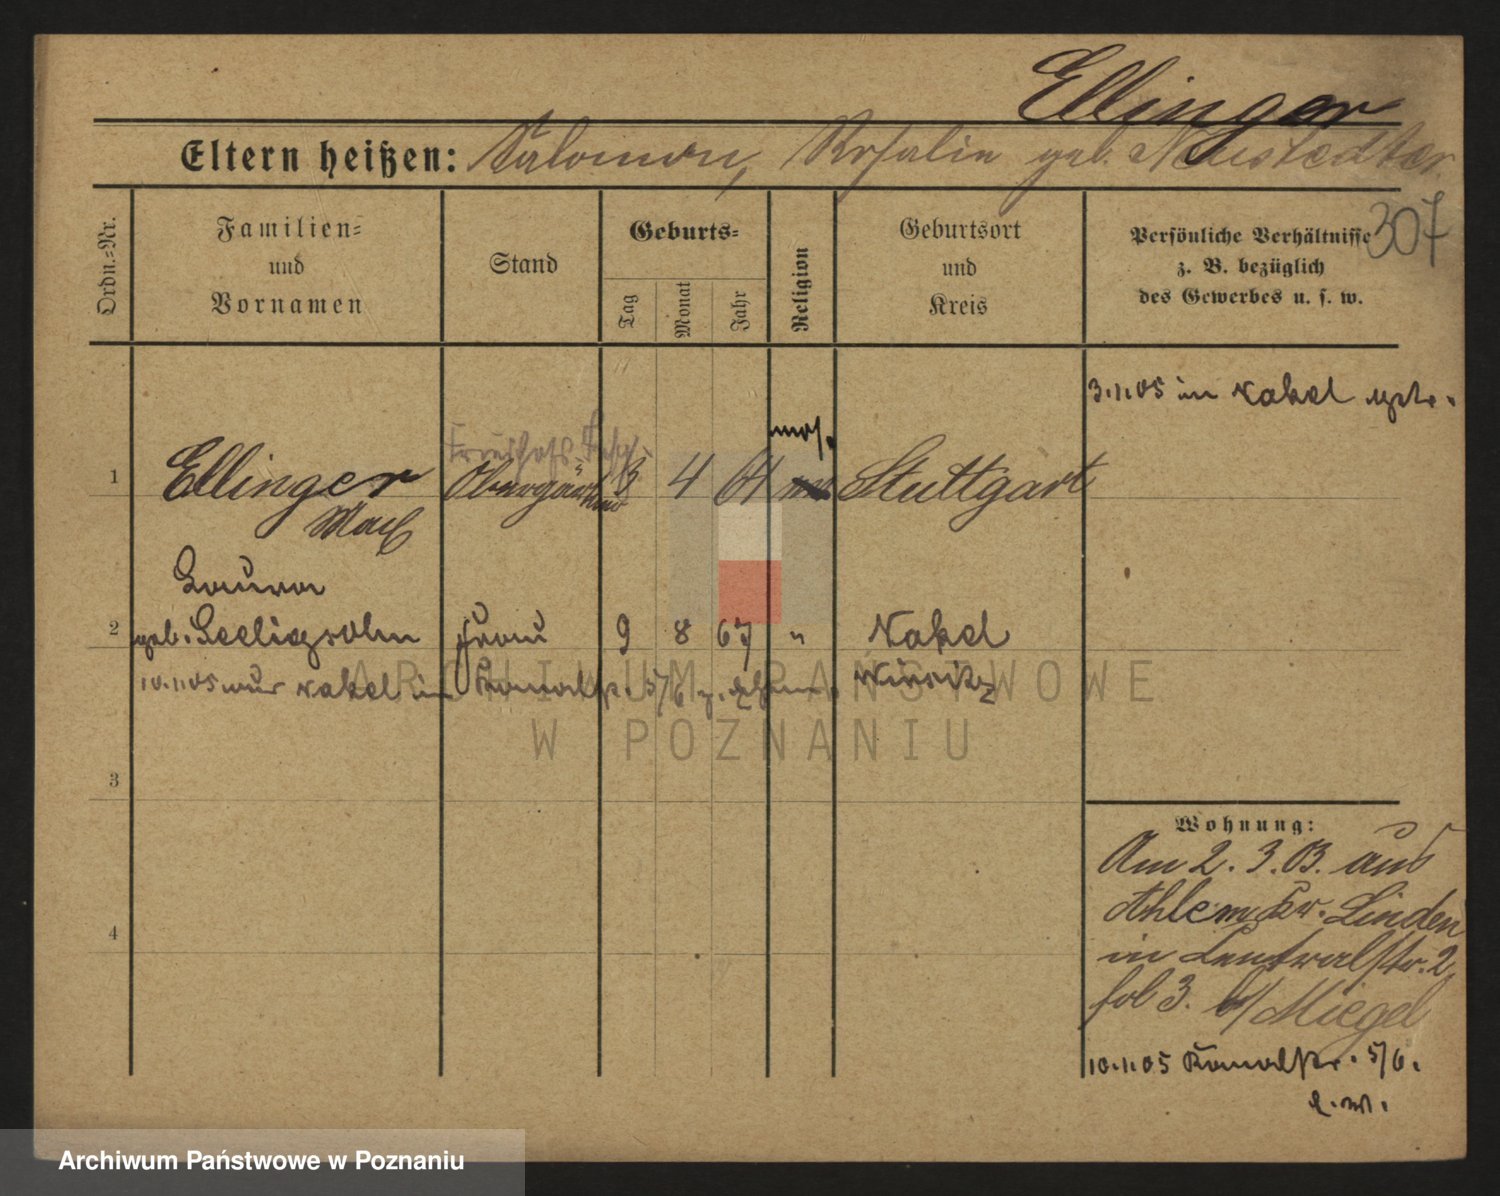 Ellinger
Eltern heißen: Salomon, Rosalie geb. Neustedter
307
Ordn.-Nr.
Familien- und Vornamen
Stand
Geburts-
Tag
Monat
Jahr
Religion
Geburtsort und Kreis
Persönliche Verhältnisse z. B. bezüglich des Gewerbes u. s. w.
3.1.05 in Nakel
mos.
1 Ellinger Obergärtner 3 4 64 Stuttgart
Max
Laura
2 geb. Seeligsohn Frau 9 8 67 " Nakel
10.1.05 aus Nakel in Kanalstr. 5/6 z. Wirsitz
3
4
Wohnung:
Am 2.3.03. aus
Ahlem Kr. Linden
in Centralstr. 2,
fol 3. b/ Miegel
10.1.05 Kanalstr. 5/6.
ARCHIWUM PAŃSTWOWE
W POZNANIU
Archiwum Państwowe w Poznaniu